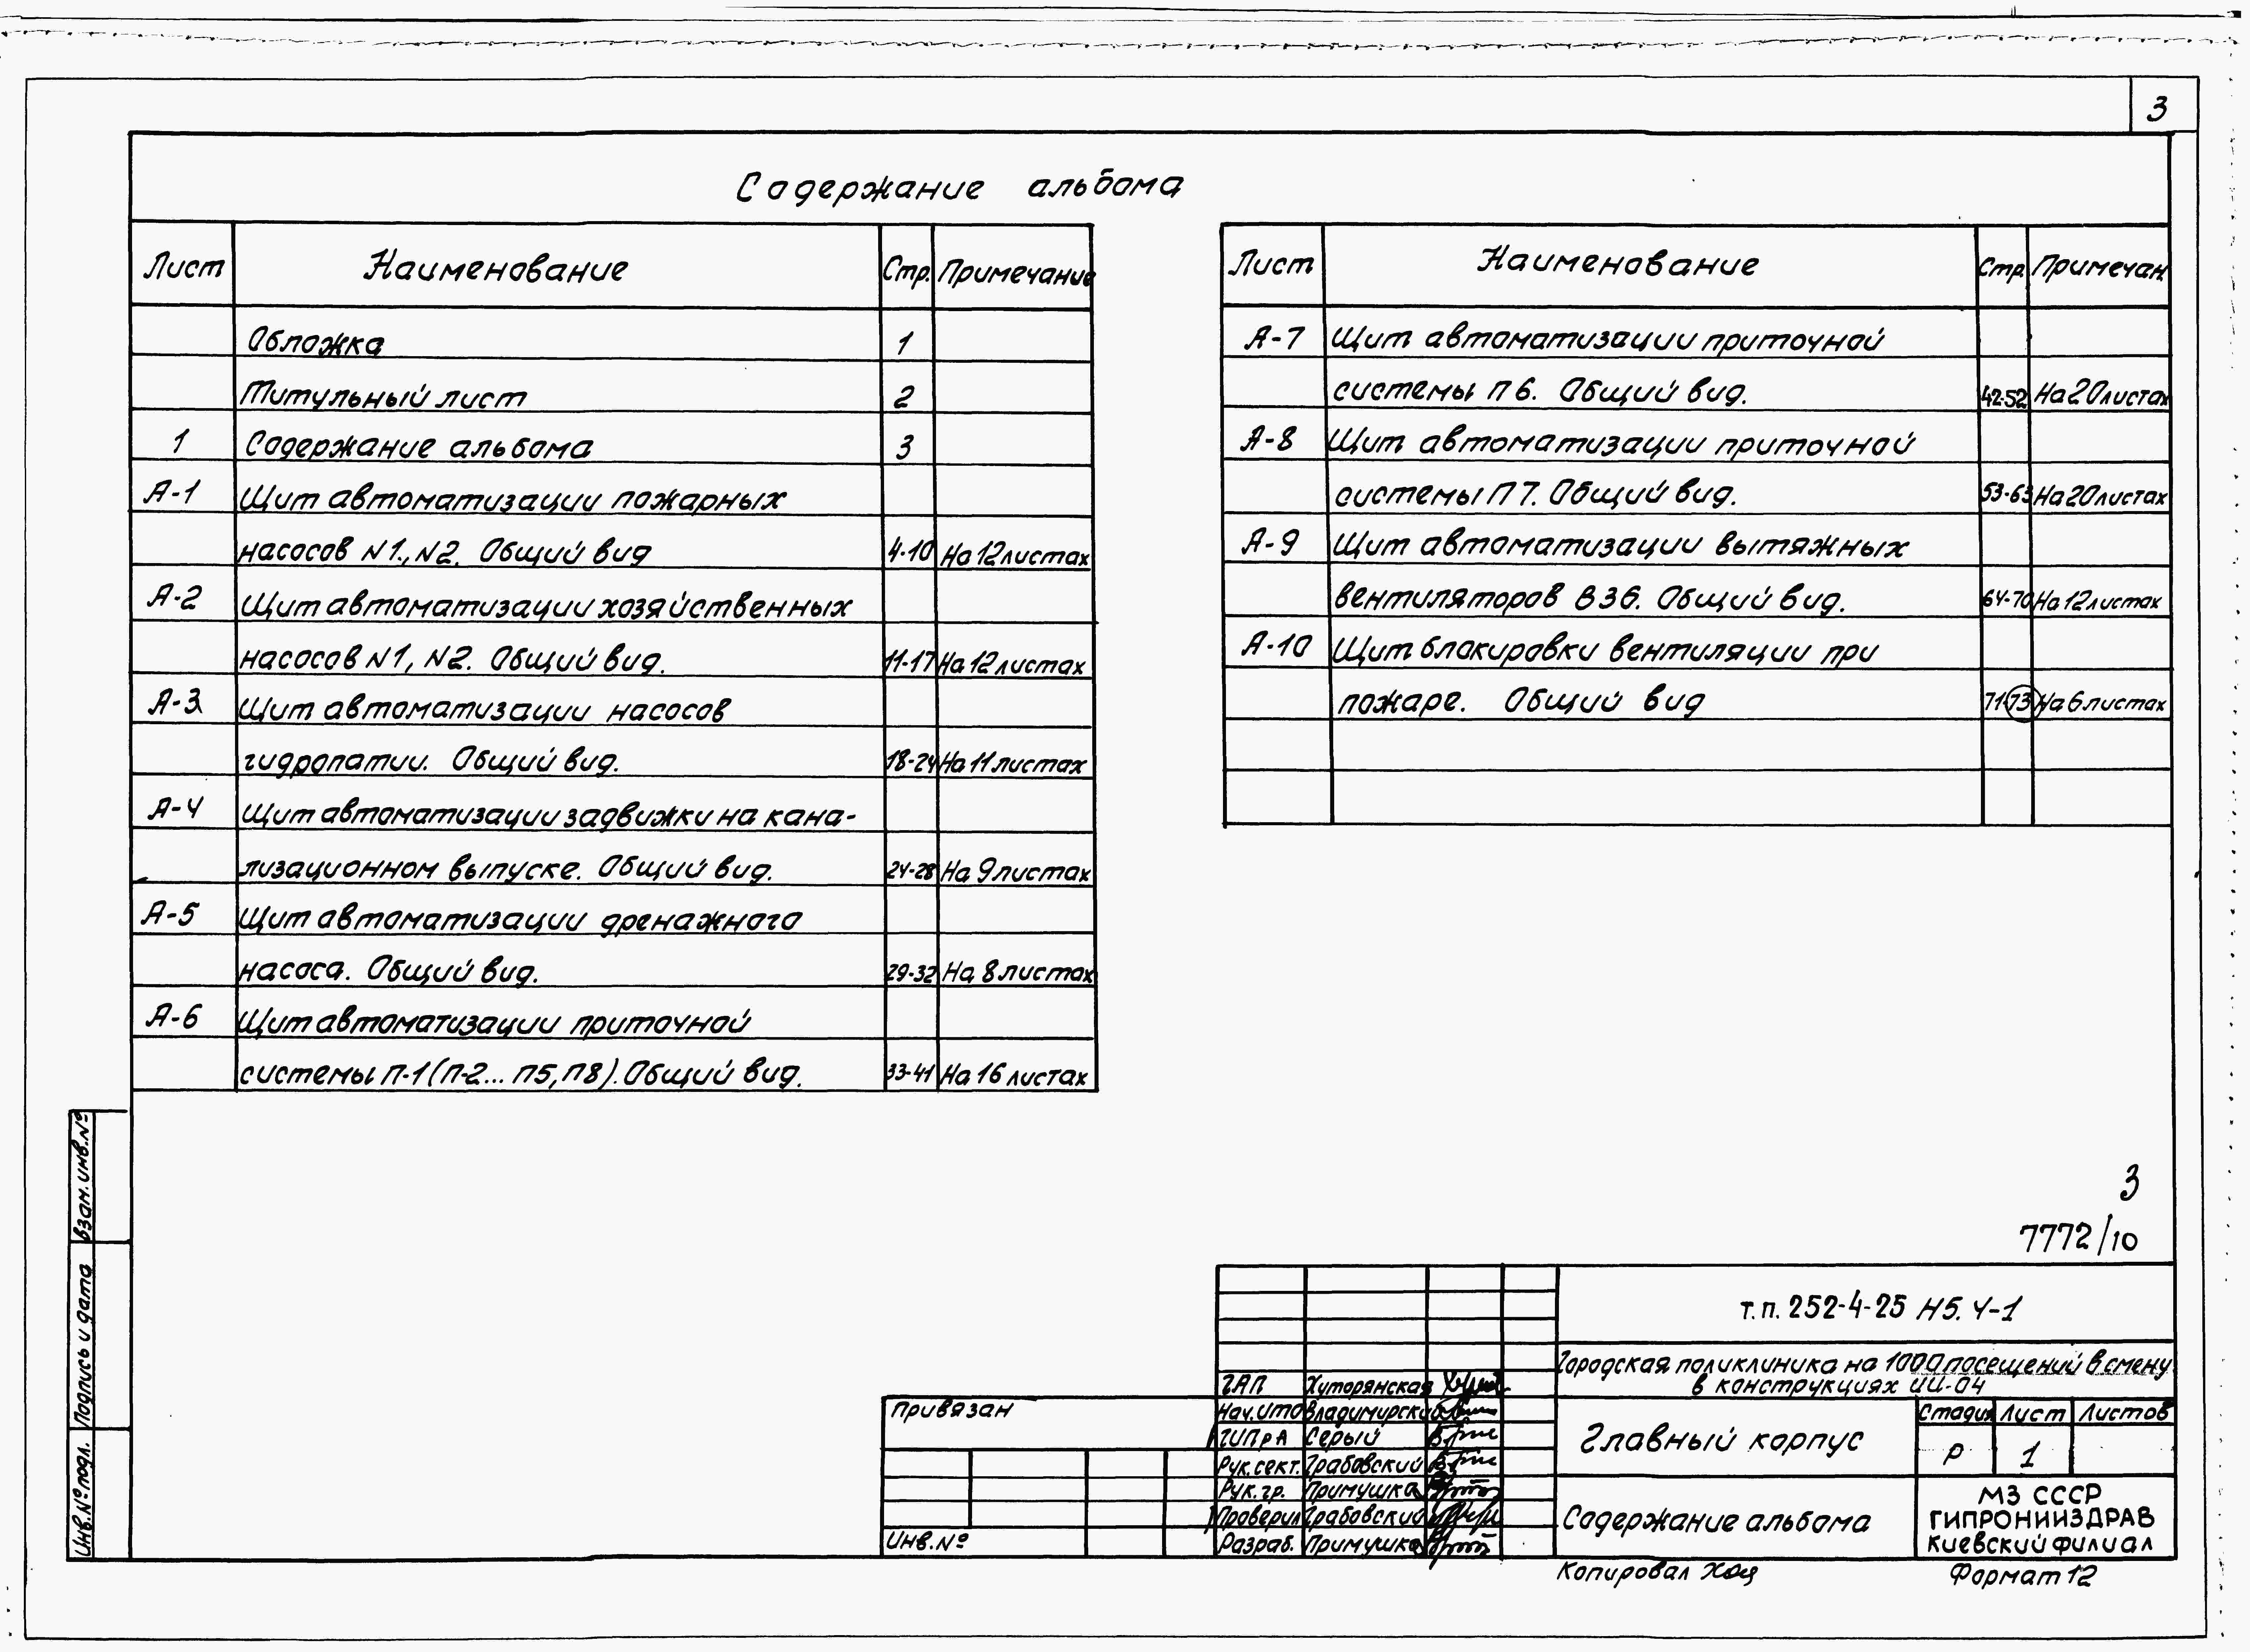 3
Содержание альбома
Лист Наименование Стр. Примечание
Обложка 1
Титульный лист 2
1 Содержание альбома 3
А-1 Щит автоматизации пожарных
насосов N1., N2. Общий вид 4-10 На 12 листах
А-2 Щит автоматизации хозяйственных
насосов N1, N2. Общий вид. 11-17 На 12 листах
А-3 Щит автоматизации насосов
гидропатии. Общий вид. 18-24 На 11 листах
А-4 Щит автоматизации задвижки на кана-
лизационном выпуске. Общий вид. 24-28 На 9 листах
А-5 Щит автоматизации дренажного
насоса. Общий вид. 29-32 На 8 листах
А-6 Щит автоматизации приточной
системы П-1 (П-2... П5, П8). Общий вид. 33-41 На 16 листах
Лист Наименование Стр. Примечан.
А-7 Щит автоматизации приточной
системы П 6. Общий вид. 42-52 На 20 листах
А-8 Щит автоматизации приточной
системы П 7. Общий вид. 53-63 На 20 листах
А-9 Щит автоматизации вытяжных
вентиляторов В 36. Общий вид. 64-70 На 12 листах
А-10 Щит блокировки вентиляции при
пожаре. Общий вид 71-73 На 6 листах
3
7772/10
т.п. 252-4-25 Н5. Ч-1
Городская поликлиника на 1000 посещений в смену
в конструкциях ИИ-04
ГАП Хуторянская
Нач. ИТО Владимирский
ГИПрА Серый
Рук. сект. Грабовский
Рук. гр. Примушка
Проверил Грабовский
Разраб. Примушка
Привязан
Инв. №
Главный корпус
Стадия Лист Листов
Р 1
Содержание альбома
МЗ СССР
ГИПРОНИИЗДРАВ
Киевский филиал
Копировал
Формат 12
Взам. инв. №
Подпись и дата
Инв. № подл.